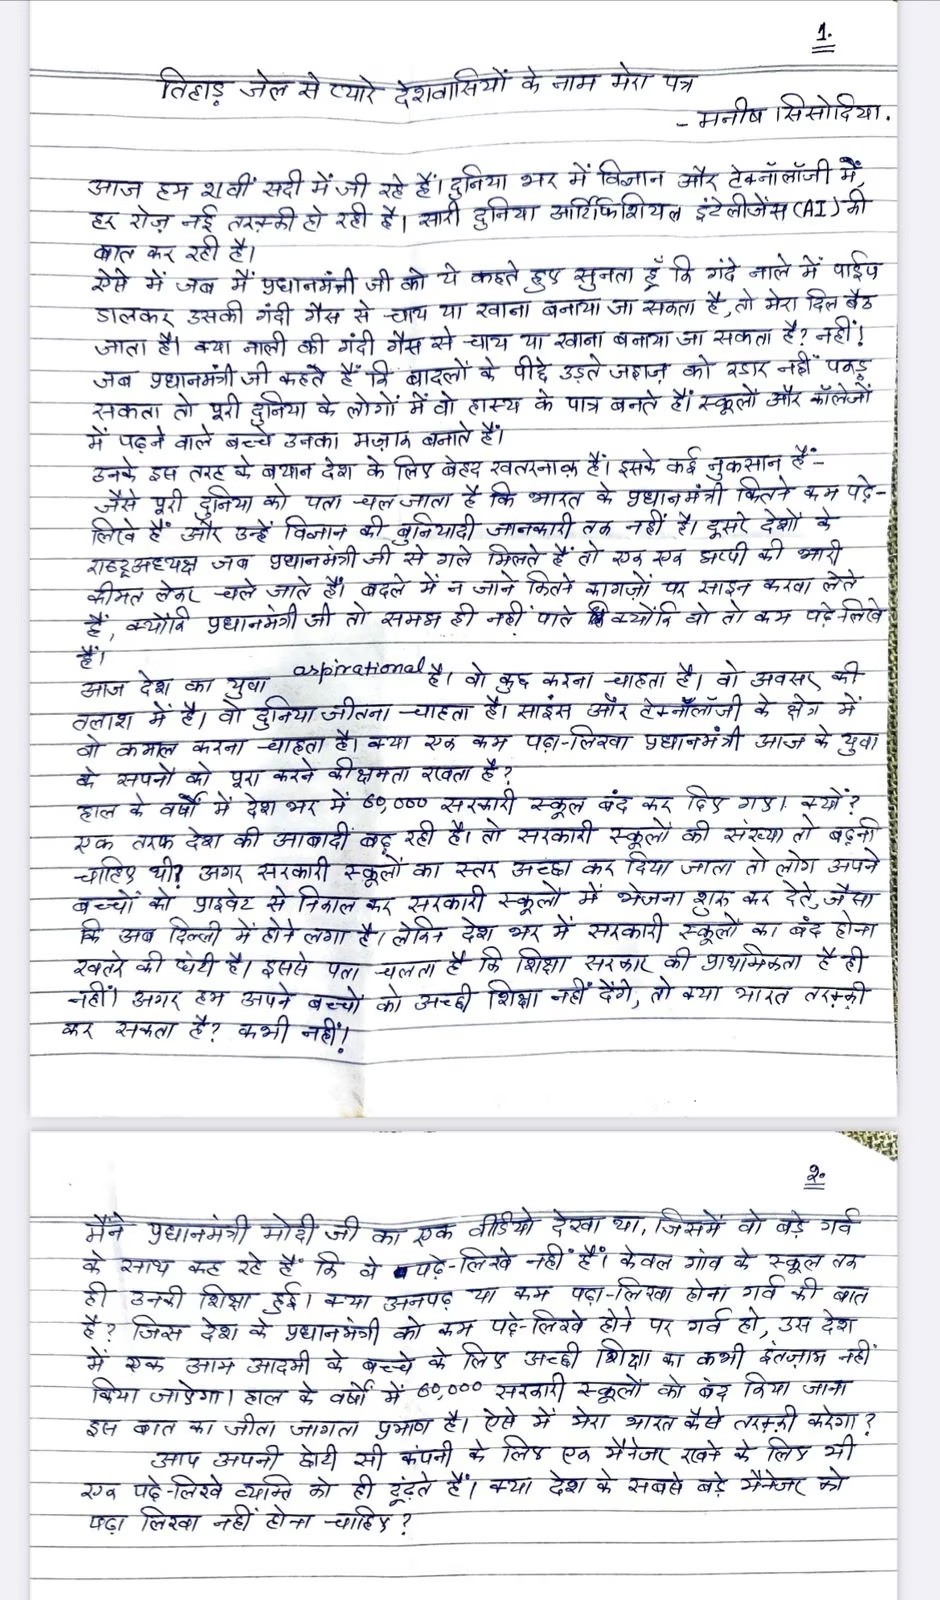 1.
तिहाड़ जेल से प्यारे देशवासियों के नाम मेरा पत्र
- मनीष सिसोदिया.
आज हम 21वीं सदी में जी रहे हैं। दुनिया भर में विज्ञान और टेक्नॉलॉजी में,
हर रोज़ नई तरक़्की हो रही है। सारी दुनिया आर्टिफिशियल इंटेलीजेंस (AI) की
बात कर रही है।
ऐसे में जब मैं प्रधानमंत्री जी को ये कहते हुए सुनता हूँ कि गंदे नाले में पाईप
डालकर उसकी गंदी गैस से चाय या खाना बनाया जा सकता है, तो मेरा दिल बैठ
जाता है। क्या नाली की गंदी गैस से चाय या खाना बनाया जा सकता है? नहीं!
जब प्रधानमंत्री जी कहते हैं कि बादलों के पीछे उड़ते जहाज़ को रडार नहीं पकड़
सकता तो पूरी दुनिया के लोगों में वो हास्य के पात्र बनते हैं। स्कूलों और कॉलेजों
में पढ़ने वाले बच्चे उनका मज़ाक बनाते हैं।
उनके इस तरह के बयान देश के लिए बेहद खतरनाक़ हैं। इसके कई नुकसान हैं-
जैसे पूरी दुनिया को पता चल जाता है कि भारत के प्रधानमंत्री कितने कम पढ़े-
लिखे हैं और उन्हें विज्ञान की बुनियादी जानकारी तक नहीं है। दूसरे देशों के
राष्ट्रअध्यक्ष जब प्रधानमंत्री जी से गले मिलते हैं तो एक एक झप्पी की भारी
कीमत लेकर चले जाते हैं। बदले में न जाने कितने कागजों पर साइन करवा लेते
हैं, क्योंकि प्रधानमंत्री जी तो समझ ही नहीं पाते क्योंकि वो तो कम पढ़े-लिखे
हैं।
आज देश का युवा aspirational है। वो कुछ करना चाहता है। वो अवसर की
तलाश में है। वो दुनिया जीतना चाहता है। साइंस और टेक्नॉलॉजी के क्षेत्र में
वो कमाल करना चाहता है। क्या एक कम पढ़ा-लिखा प्रधानमंत्री आज के युवा
के सपनों को पूरा करने की क्षमता रखता है?
हाल के वर्षों में देश भर में 60,000 सरकारी स्कूल बंद कर दिए गए। क्यों?
एक तरफ देश की आबादी बढ़ रही है। तो सरकारी स्कूलों की संख्या तो बढ़नी
चाहिए थी? अगर सरकारी स्कूलों का स्तर अच्छा कर दिया जाता तो लोग अपने
बच्चों को प्राइवेट से निकाल कर सरकारी स्कूलों में भेजना शुरु कर देते, जैसा
कि अब दिल्ली में होने लगा है। लेकिन देश भर में सरकारी स्कूलों का बंद होना
खतरे की घंटी है। इससे पता चलता है कि शिक्षा सरकार की प्राथमिकता है ही
नहीं। अगर हम अपने बच्चों को अच्छी शिक्षा नहीं देंगे, तो क्या भारत तरक़्की
कर सकता है? कभी नहीं!
2.
मैंने प्रधानमंत्री मोदी जी का एक वीडियो देखा था, जिसमें वो बड़े गर्व
के साथ कह रहे हैं कि वे पढ़े-लिखे नहीं हैं। केवल गांव के स्कूल तक
ही उनकी शिक्षा हुई। क्या अनपढ़ या कम पढ़ा-लिखा होना गर्व की बात
है? जिस देश के प्रधानमंत्री को कम पढ़े-लिखे होने पर गर्व हो, उस देश
में एक आम आदमी के बच्चे के लिए अच्छी शिक्षा का कभी इंतजाम नहीं
किया जाऐगा। हाल के वर्षों में 60,000 सरकारी स्कूलों को बंद किया जाना
इस बात का जीता जागता प्रमाण है। ऐसे में मेरा भारत कैसे तरक़्की करेगा?
आप अपनी छोटी सी कंपनी के लिए एक मैनेजर रखने के लिए भी
एक पढ़े-लिखे व्यक्ति को ही ढूंढ़ते हैं। क्या देश के सबसे बड़े मैनेजर को
पढ़ा लिखा नहीं होना चाहिए?